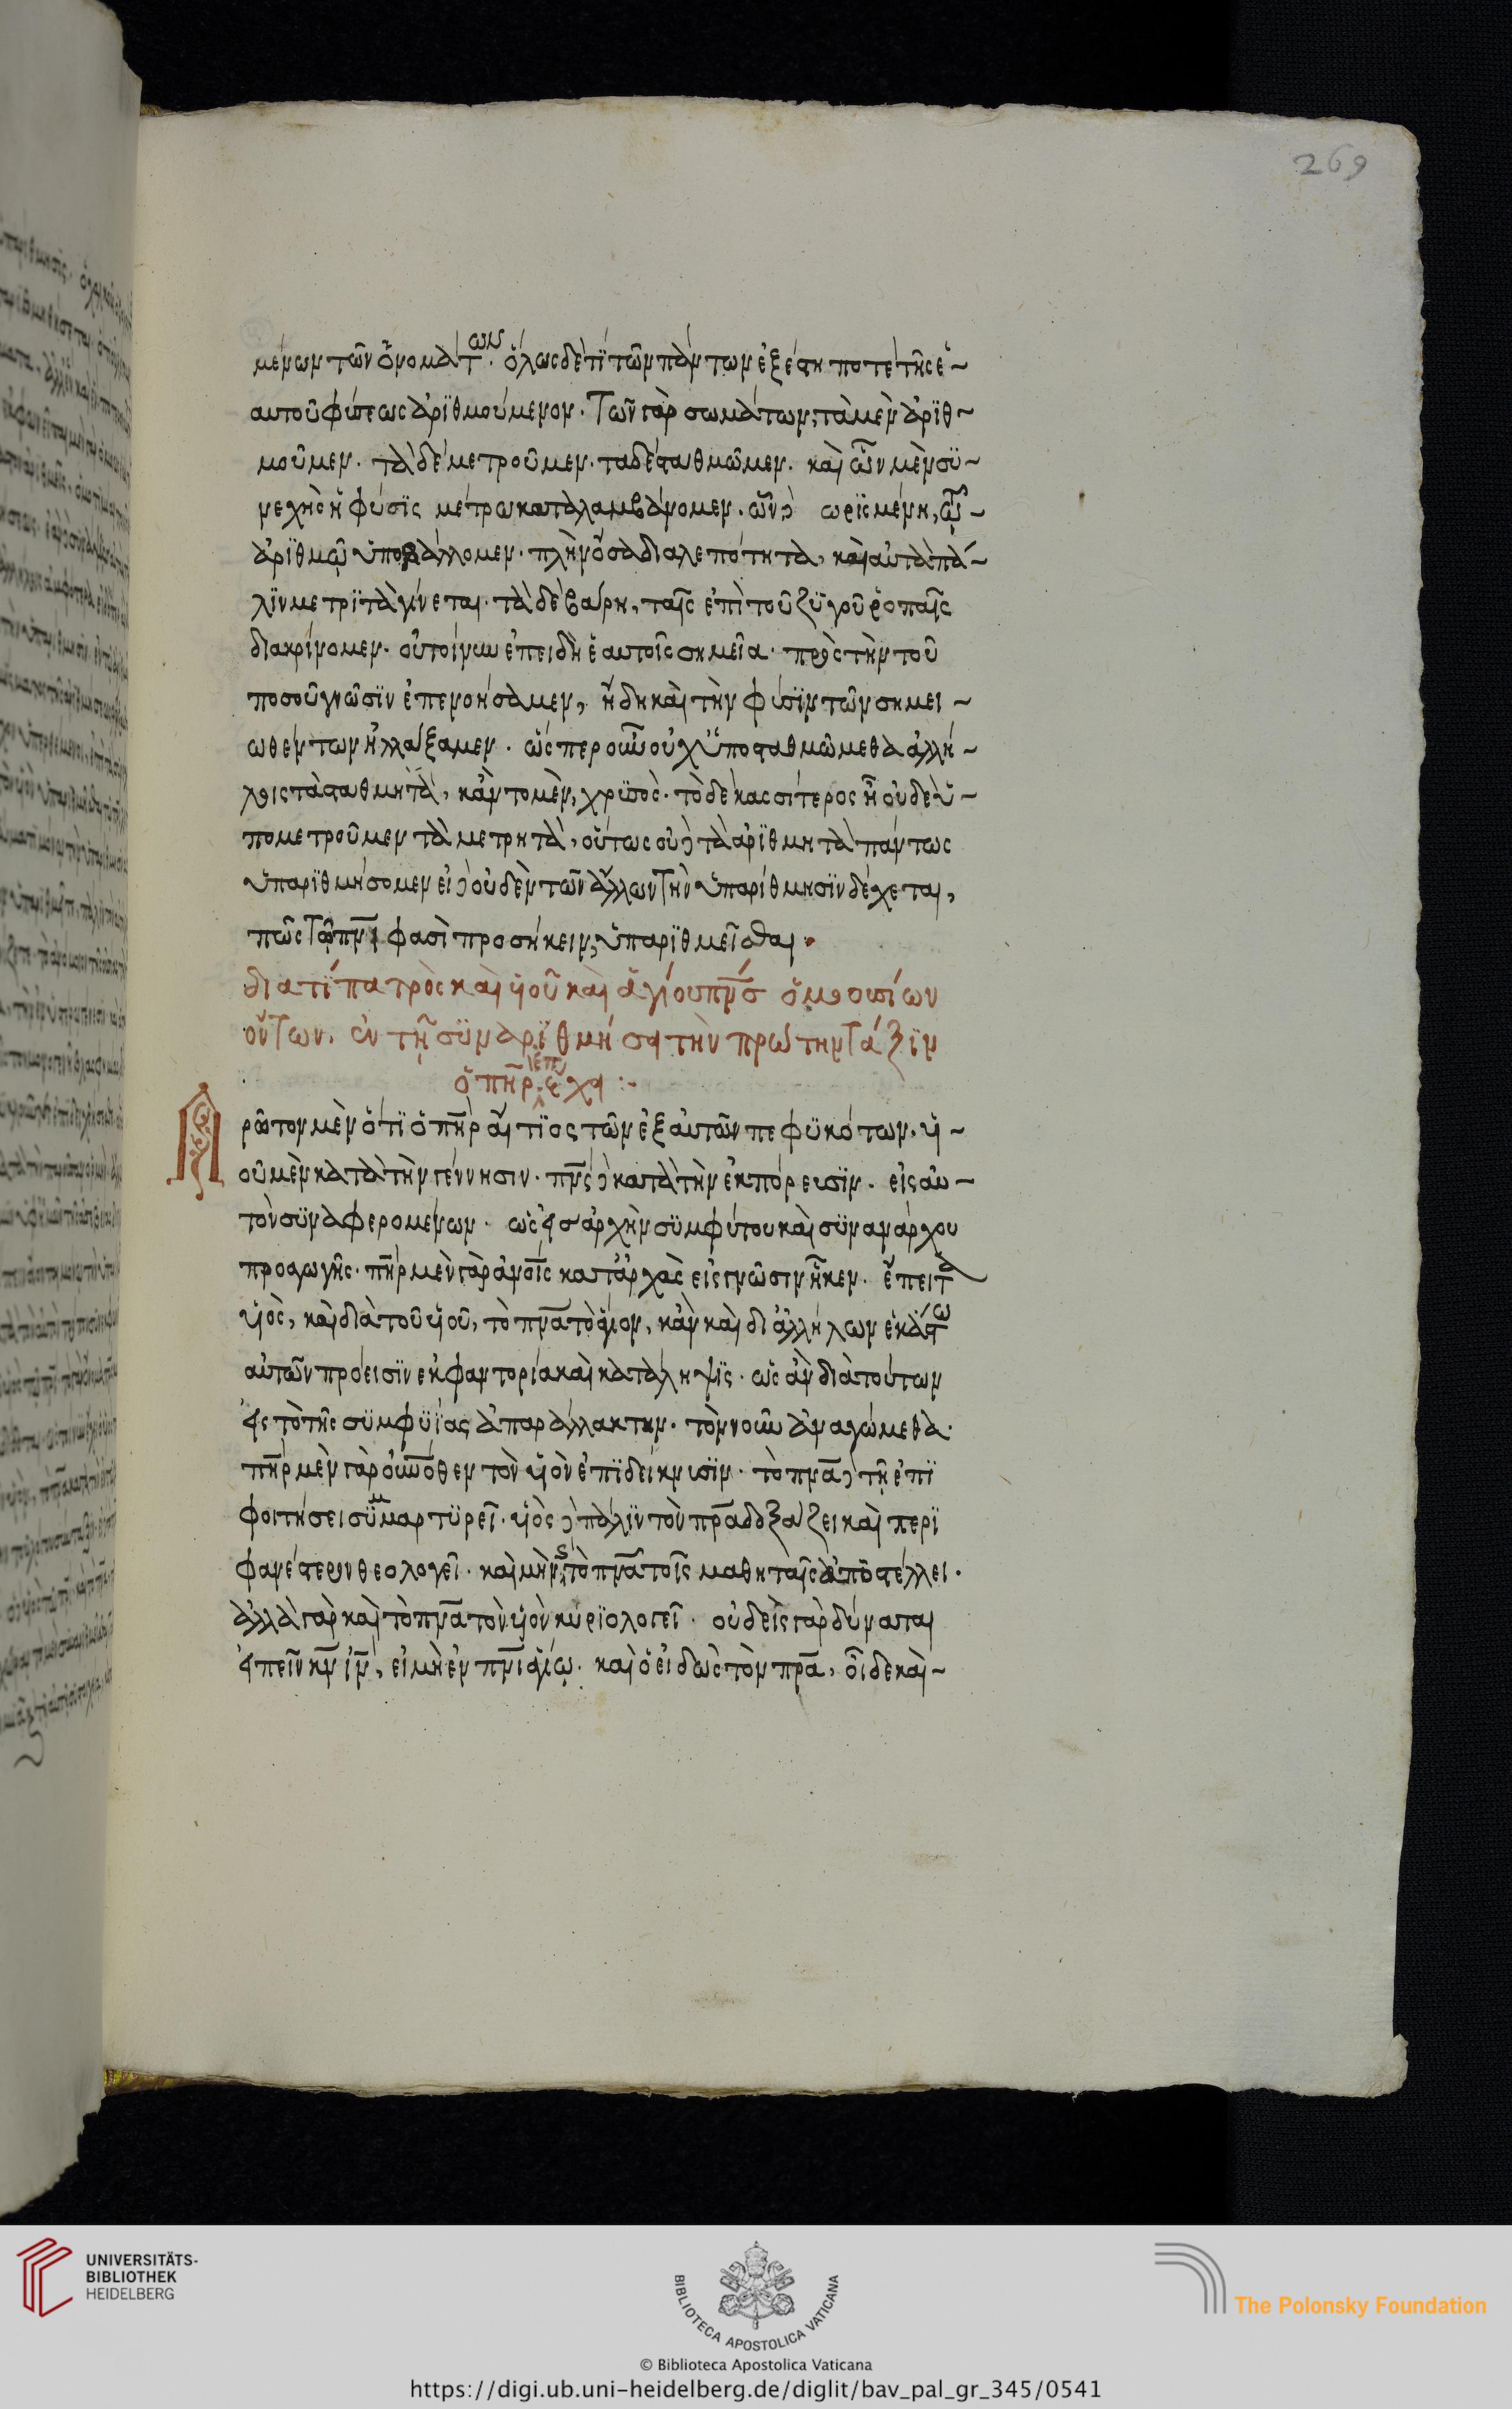 269
μένων τῶν ὀνομάτ ων. ὅλως δέ τί τῶν πάντων ἐξέστη ποτὲ τῆς ἑ~
αυτοῦ φύσεως ἀρϊθμούμενον. Τῶν γὰρ σωμάτων, τὰ μὲν ἀρϊθ~
μοῦμεν. τὰ δὲ μετροῦμεν. τα δὲ σταθμῶμεν. καὶ ὧν μὲν σϋ~
νεχὴς ἡ φύσϊς μέτρω καταλαμβάνομεν. ὧν δὲ ωρϊσμένη,
ἀρϊθμῷ ὑποβάλλομεν. πλὴν ὅσα διαλεπότητα, καὶ αὐτὰ πά~
λϊν μετρϊτὰ γίνεται. τὰ δὲ βαρη, ταῖς ἐπὶ τοῦ ζϋγοῦ ῥοπαῖς
διακρίνομεν. οὐ τοίνυν ἐπειδὴ ἑαυτοῖς σημεῖα. πρὸς τὴν τοῦ
ποσοῦ γνῶσϊν ἐπενοήσαμεν, ἤδη καὶ τὴν φύσϊν τῶν σημει~
ωθέντων ἠλλάξαμεν. ὥσπερ οὖν οὐχ ὑποσταθμῶμεθα ἀλλή~
λοις τὰ σταθμητὰ, κἂν το μὲν, χρϋσὸς. τὸ δὲ κασσίτερος ἢ οὐδὲ ὑ~
πομετροῦμεν τὰ μετρητὰ, οὕτως οὐδὲ τὰ ἀρϊθμητὰ πάντως
ὑπαρϊθμήσομεν εἰ δὲ οὐδὲν τῶν ἄλλων Τὴν ὑπαρίθμησϊν δέχεται,
πῶς Τῷ πνι φασὶ προσήκειν, ὑπαρϊθμεῖσθαι.
διατϊ πατρὸς καὶ ὑοῦ καὶ ἁγίου πνσ ὁμοουσίων
ὄντων. ἐν τῇ σϋναρϊθμήσει τὴν πρώτην Τάξϊν
ὁ πὴρ ἔχει :~
Πρῶτον μὲν ὅτϊ ὁ πὴρ αἴτϊος τῶν ἐξ αὐτῶν πεφϋκότων. ὑ~
οῦ μὲν κατὰ τὴν γέννησιν. πνς δὲ κατὰ τὴν ἐκπόρευσϊν. εἰς αὐ~
τὸν σϋναφερομένων. ὡς εἰσ ἀρχὴν σϋμφύτου καὶ σϋνανάρχου
προαγωγῆς. πὴρ μὲν γὰρ κατ ἀρχὰς εἰς γνῶσιν ἧκεν. ἔπειτ
ὑὸς, καὶ διὰ τοῦ ὑοῦ, τὸ πνα τὸ ἅγιον, κἂν καὶ δι ἀλλήλων ἑκάστω
αὐτῶν προεισϊν ἐκφαντορία καὶ κατάληψϊς. ὡς ἂν διὰ τούτων
εἰς τὸ τῆς σϋμφϋΐας ἀπαράλλακτην. τὸν νοῦν ἀναγώμεθα.
πὴρ μὲν γὰρ οὐνόθεν τὸν ὑὸν ἐπϊδείκνυσϊν. τὸ πνα δὲ τῇ ἐπϊ
φοιτήσει σϋμμαρτϋρεῖ. ὑὸς δὲ πάλϊν τὸν πρα δοξάζει καὶ περϊ
φανέστερον θεολογεῖ. καὶ μὴν τὸ πνα τοῖς μαθηταῖς ἀποστέλλει.
ἀλλὰ γὰρ καὶ τὸ πνα τὸν ὑὸν κϋρϊολογεῖ. οὐδεὶς γὰρ δύναται
εἰπεῖν κν ιν, εἰ μὴ ἐν πνι ἁγίω. καὶ ὁ εἰδὼς τὸν πρα, οἶδε καὶ~
UNIVERSITÄTS-
BIBLIOTHEK
HEIDELBERG
BIBLIOTECA APOSTOLICA VATICANA
The Polonsky Foundation
© Biblioteca Apostolica Vaticana
https://digi.ub.uni-heidelberg.de/diglit/bav_pal_gr_345/0541